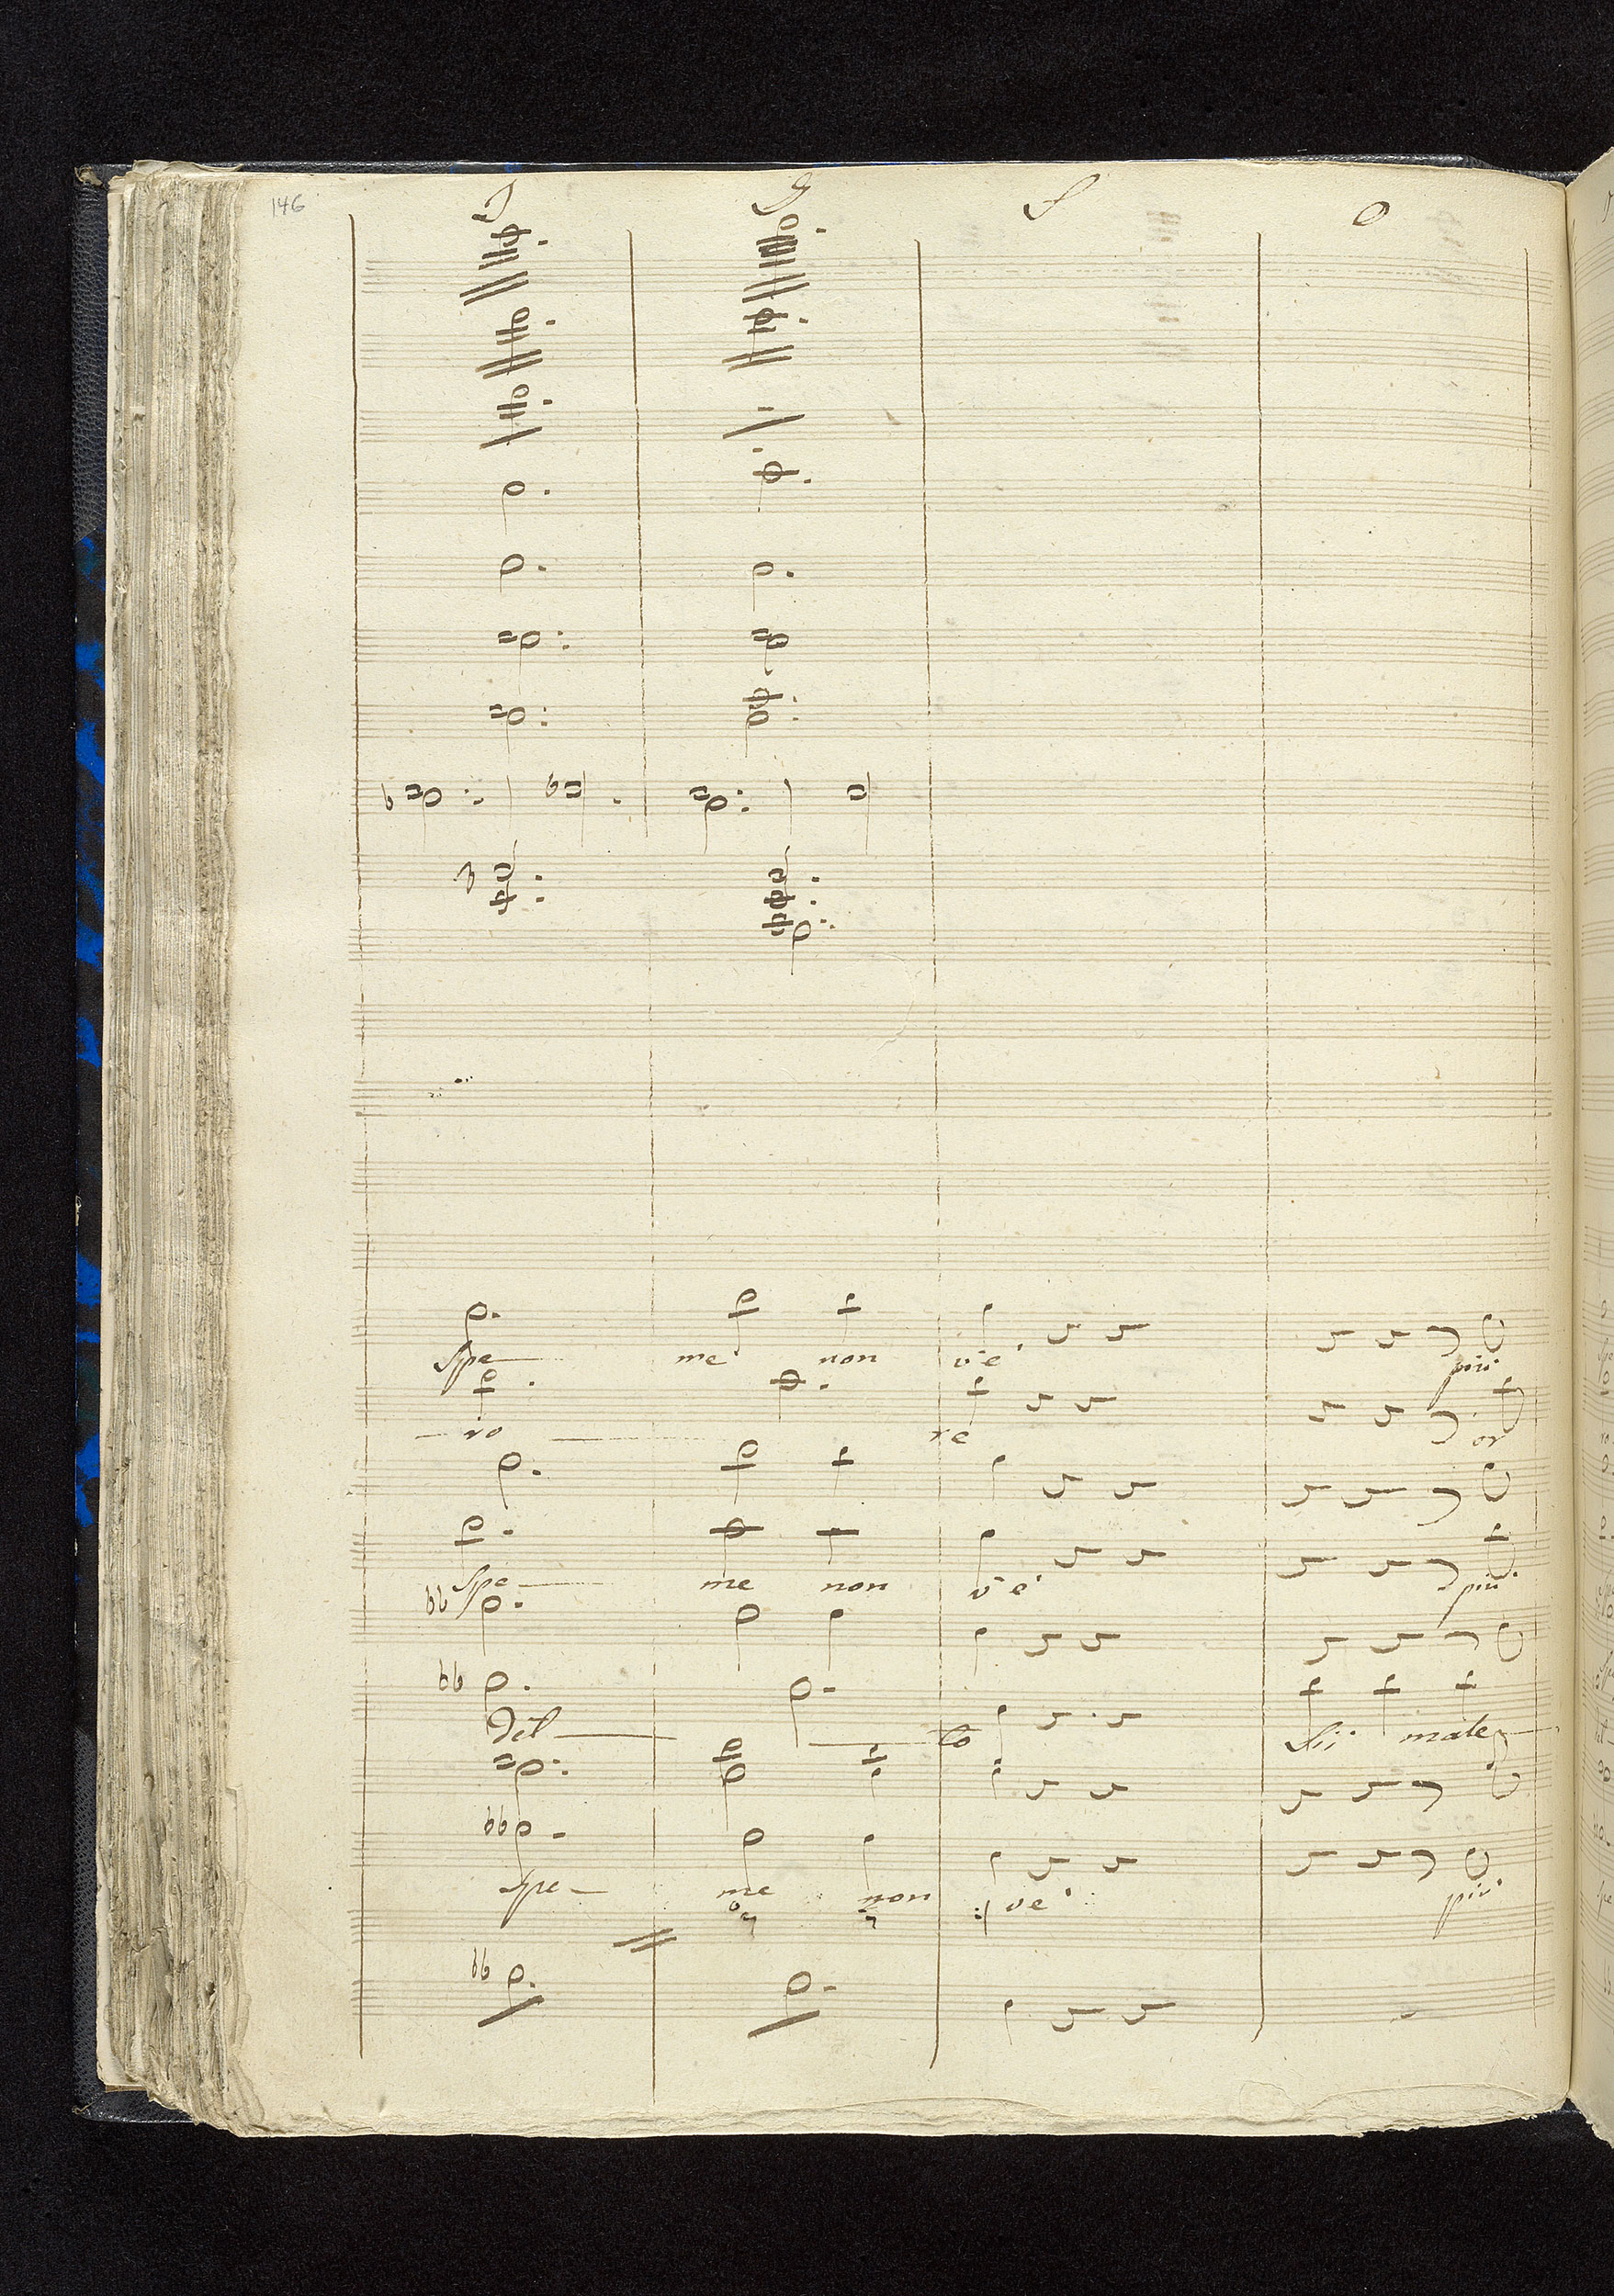 146
Spe me non v'è più
ro re or
Spe me non v'è più
Del lo
Spe me non ve più